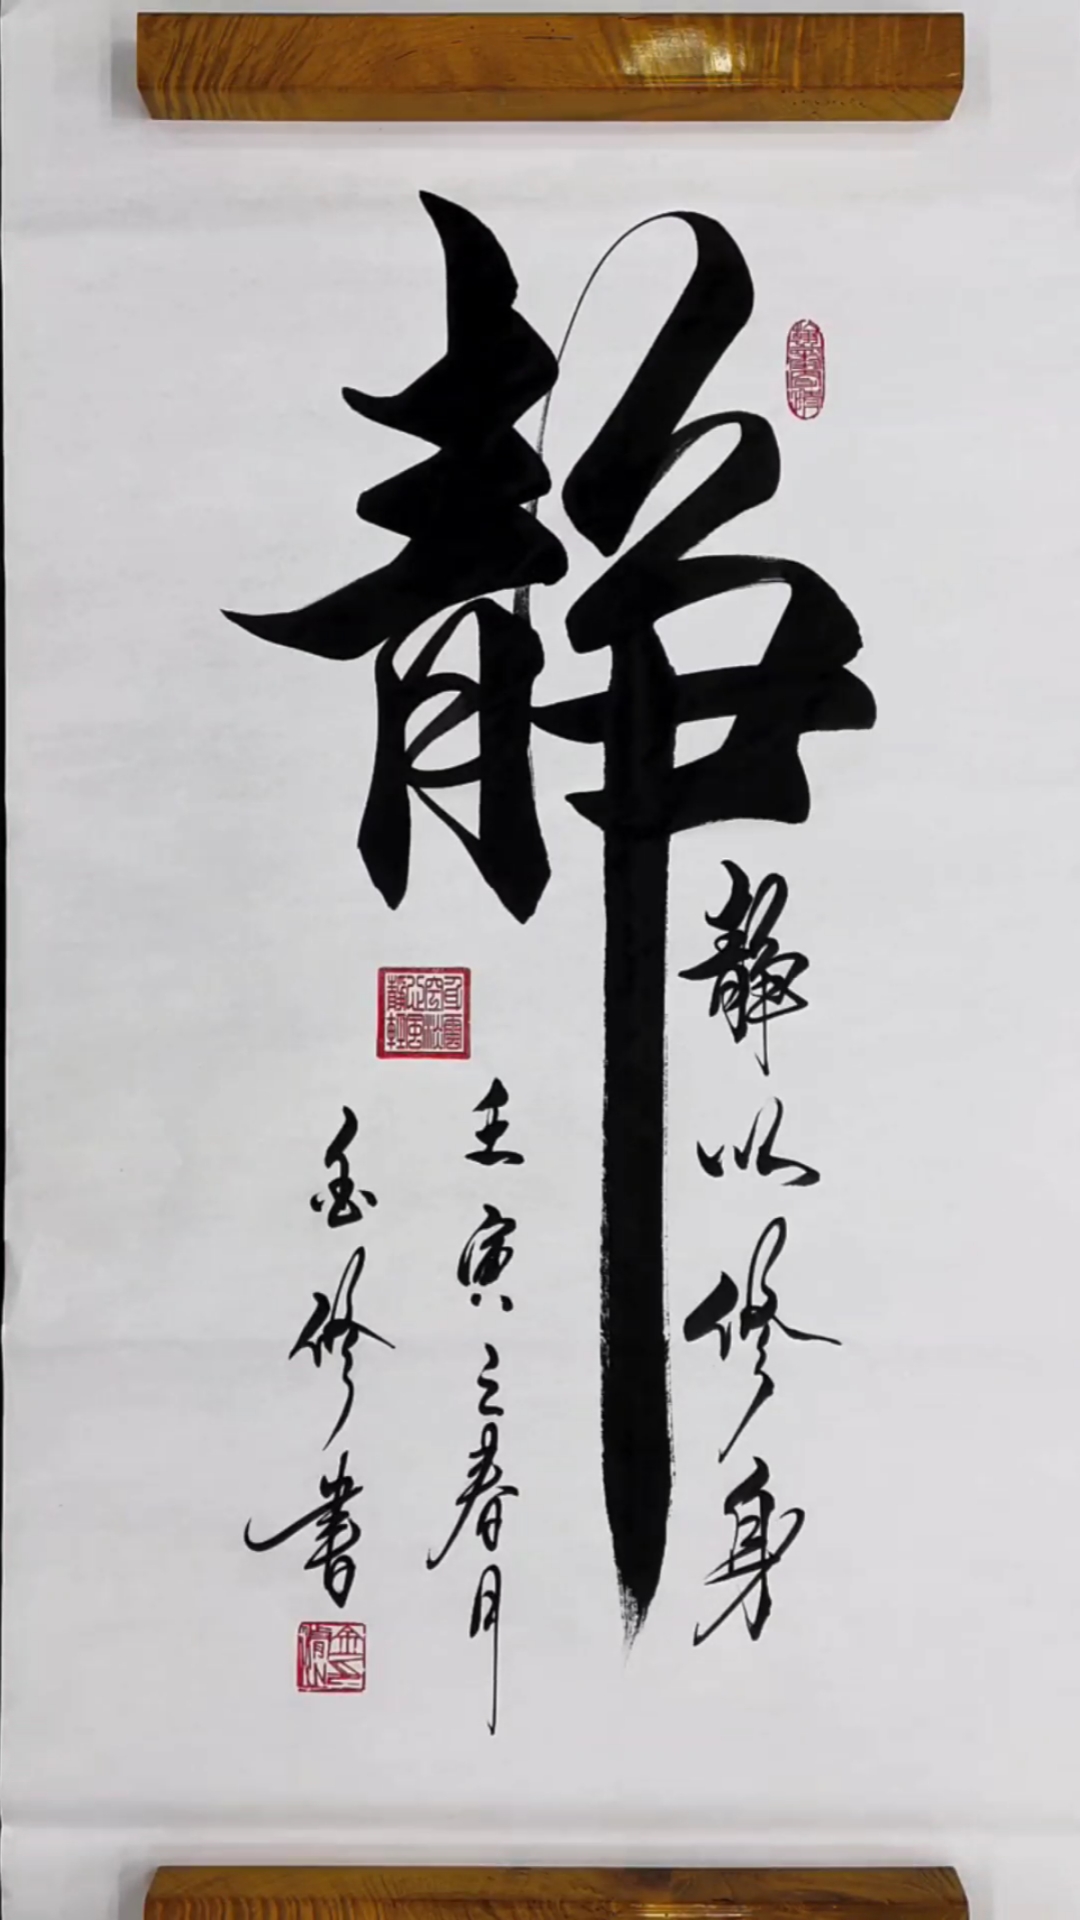 静
静以修身
壬寅之春月
金修書